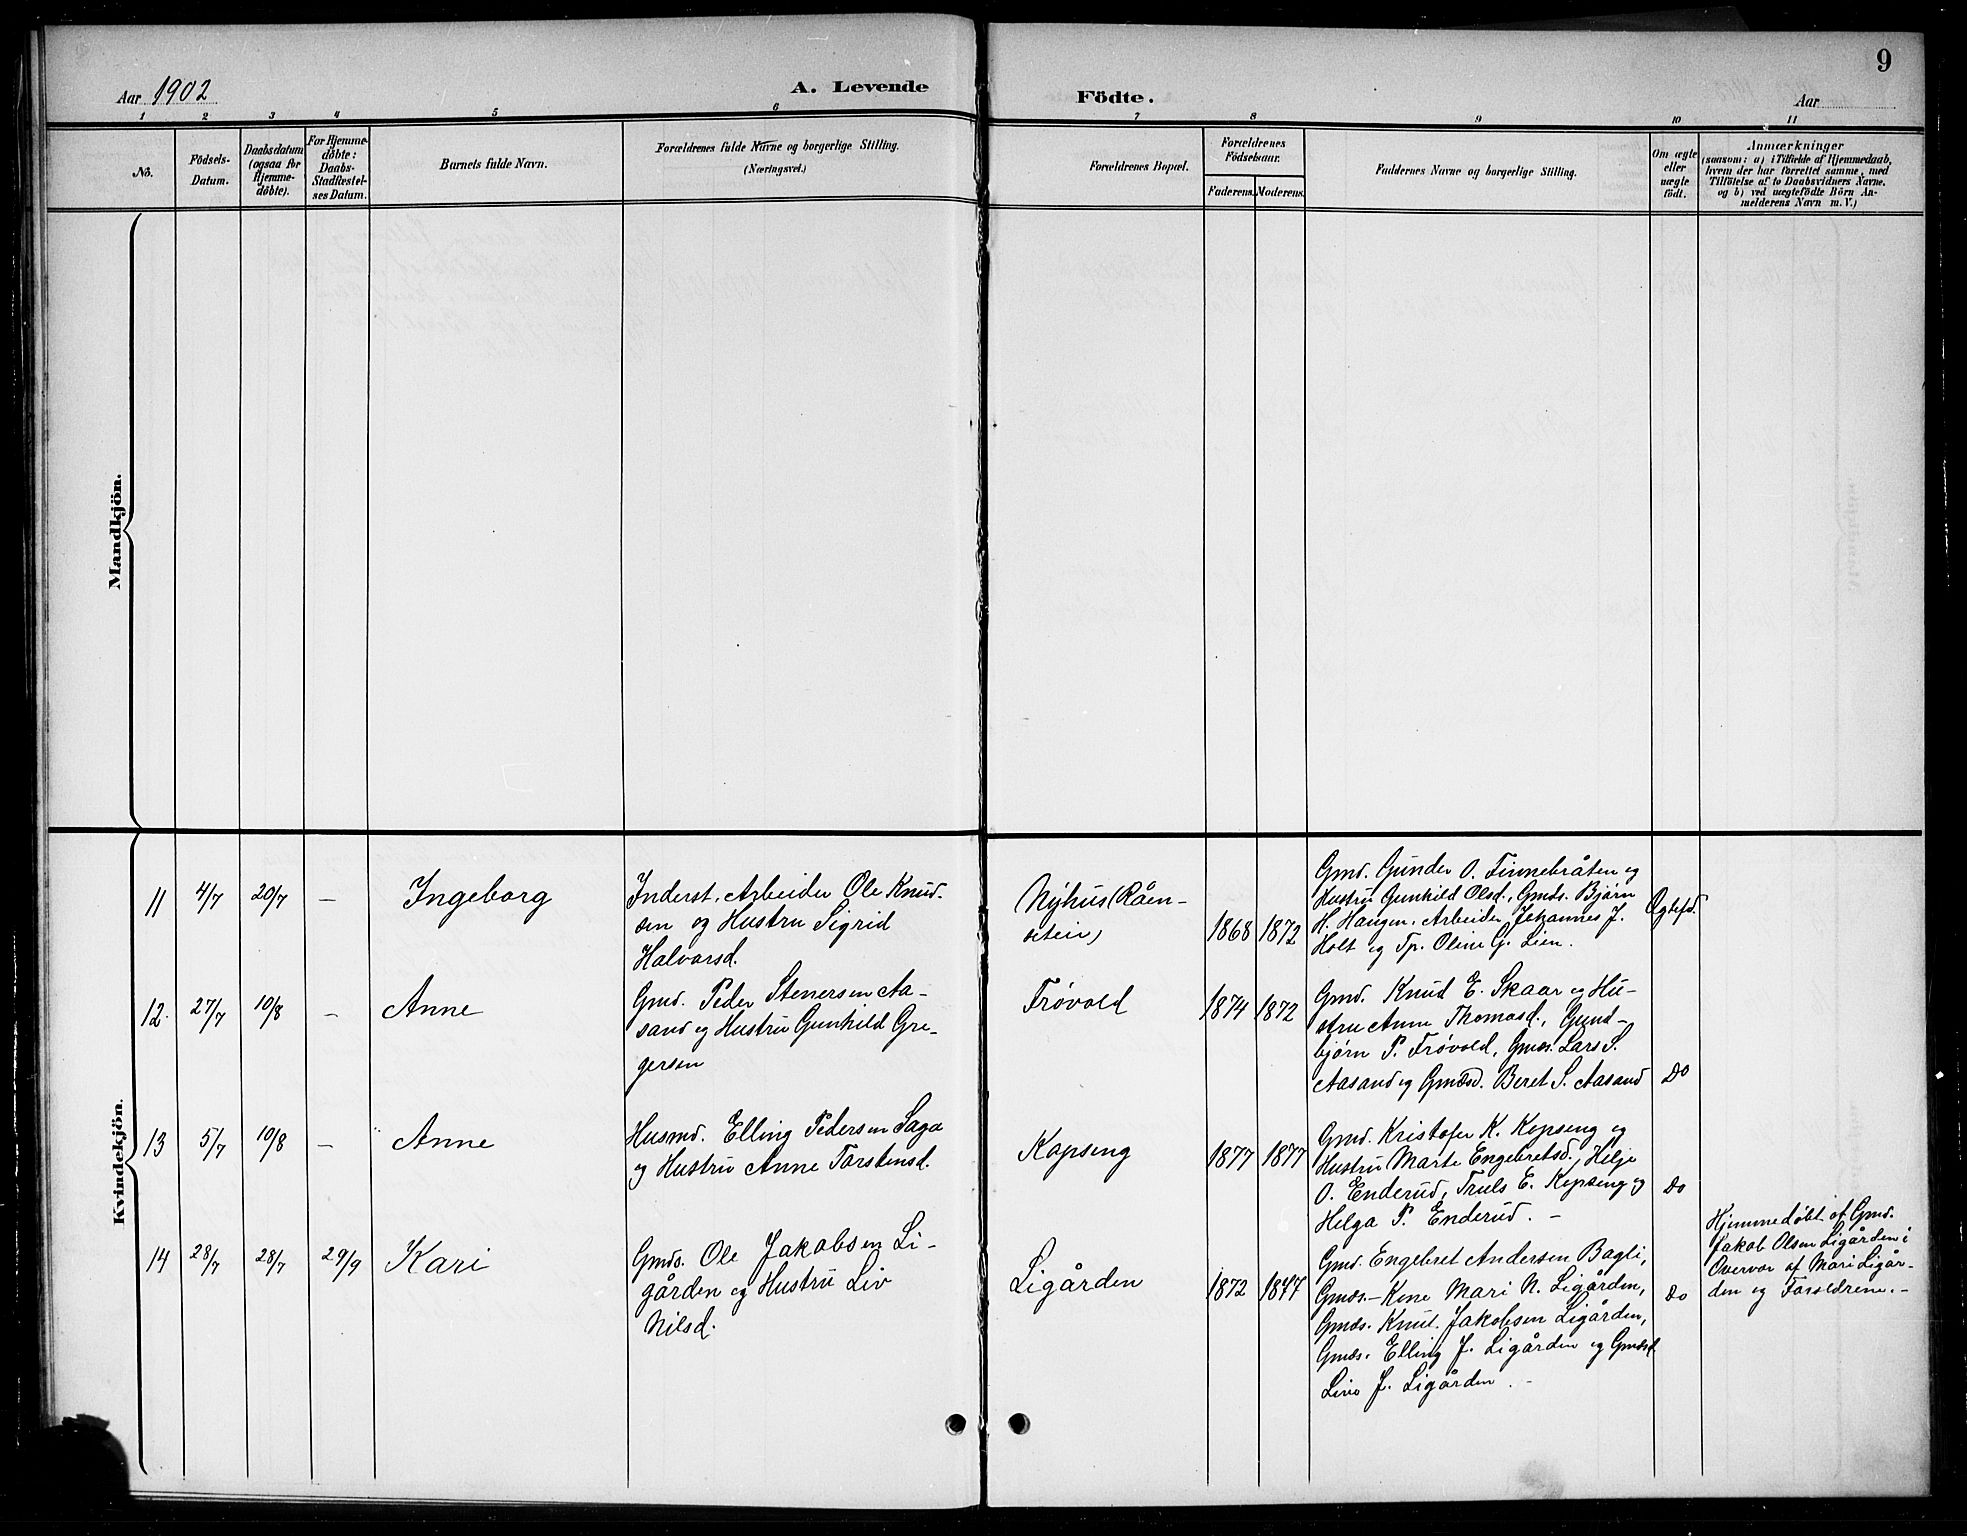 9
Aar 1902
A. Levende
Födte.
Aar
1 2 3 4 5 6 7 8 9 10 11
No.
Födsels-
Datum.
Daabsdatum
(ogsaa for
Hjemme-
döbte).
For Hjemme-
döbte:
Daabs-
Stadfæstel-
ses Datum.
Barnets fulde Navn.
Forældrenes fulde Navne og borgerlige Stilling.
(Næringsvei.)
Forældrenes Bopæl.
Forældrenes
Födselsaar.
Faderens. Moderens.
Faddernes Navne og borgerlige Stilling.
Om ægte
eller
uægte
födt.
Anmærkninger
(saasom: a) i Tilfælde af Hjemmedaab,
hvem der har forrettet samme, med
Tilföielse af to Daabsvidners Navne,
og b) ved uægtefödte Börn An-
melderens Navn m. V.)
Mandkjön.
Kvindekjön.
11 4/7 20/7 — Ingeborg
Inderst, Arbeider Ole Knud-
sen og Hustru Sigrid
Halvorsd.
Nyhus (Råen-
setein)
1868 1872
Gmd. Gunder O. Finnebråten og
Hustru Gunhild Olsd., Gmds. Bjørn
H. Haugen, Arbeider Johannes J.
Holt og Tp. Oline G. Lien.
Ægtefd.
12. 27/7 10/8 — Anne
Gmd. Peder Stenersen Aa-
sand og Hustru Gunhild Gre-
gersen
Frøvold
1874 1872
Gmd. Knud E. Skaar og Hu-
stru Anne Thomasd., Gund-
bjørn P. Frøvold, Gmds. Lars S.
Aasand og Gmdsd. Beret S. Aasand
Do
13 5/7 10/8 — Anne
Husmd. Elling Pedersen Saga
og Hustru Anne Torstensd.
Kopseng
1877 1877
Gmd. Kristofer K. Kopseng og
Hustru Marte Engebretsd., Helje
O. Enderud, Truls E. Kopseng og
Helga P. Enderud. —
Do
14 28/7 28/7 29/9 Kari
Gmds. Ole Jakobsen Li-
gården og Hustru Liv
Nilsd.
Ligården
1872 1877
Gmd. Engebret Andersen Bagli,
Gmds.-Kone Mari N. Ligården,
Gmds. Knut Jakobsen Ligården,
Gmds. Elling J. Ligården og Gmdsd
Live J. Ligården. —
Do
Hjemmedøbt af Gmd.
Jakob Olsen Ligården i
Overvær af Mari Ligår-
den og Forældrene. —